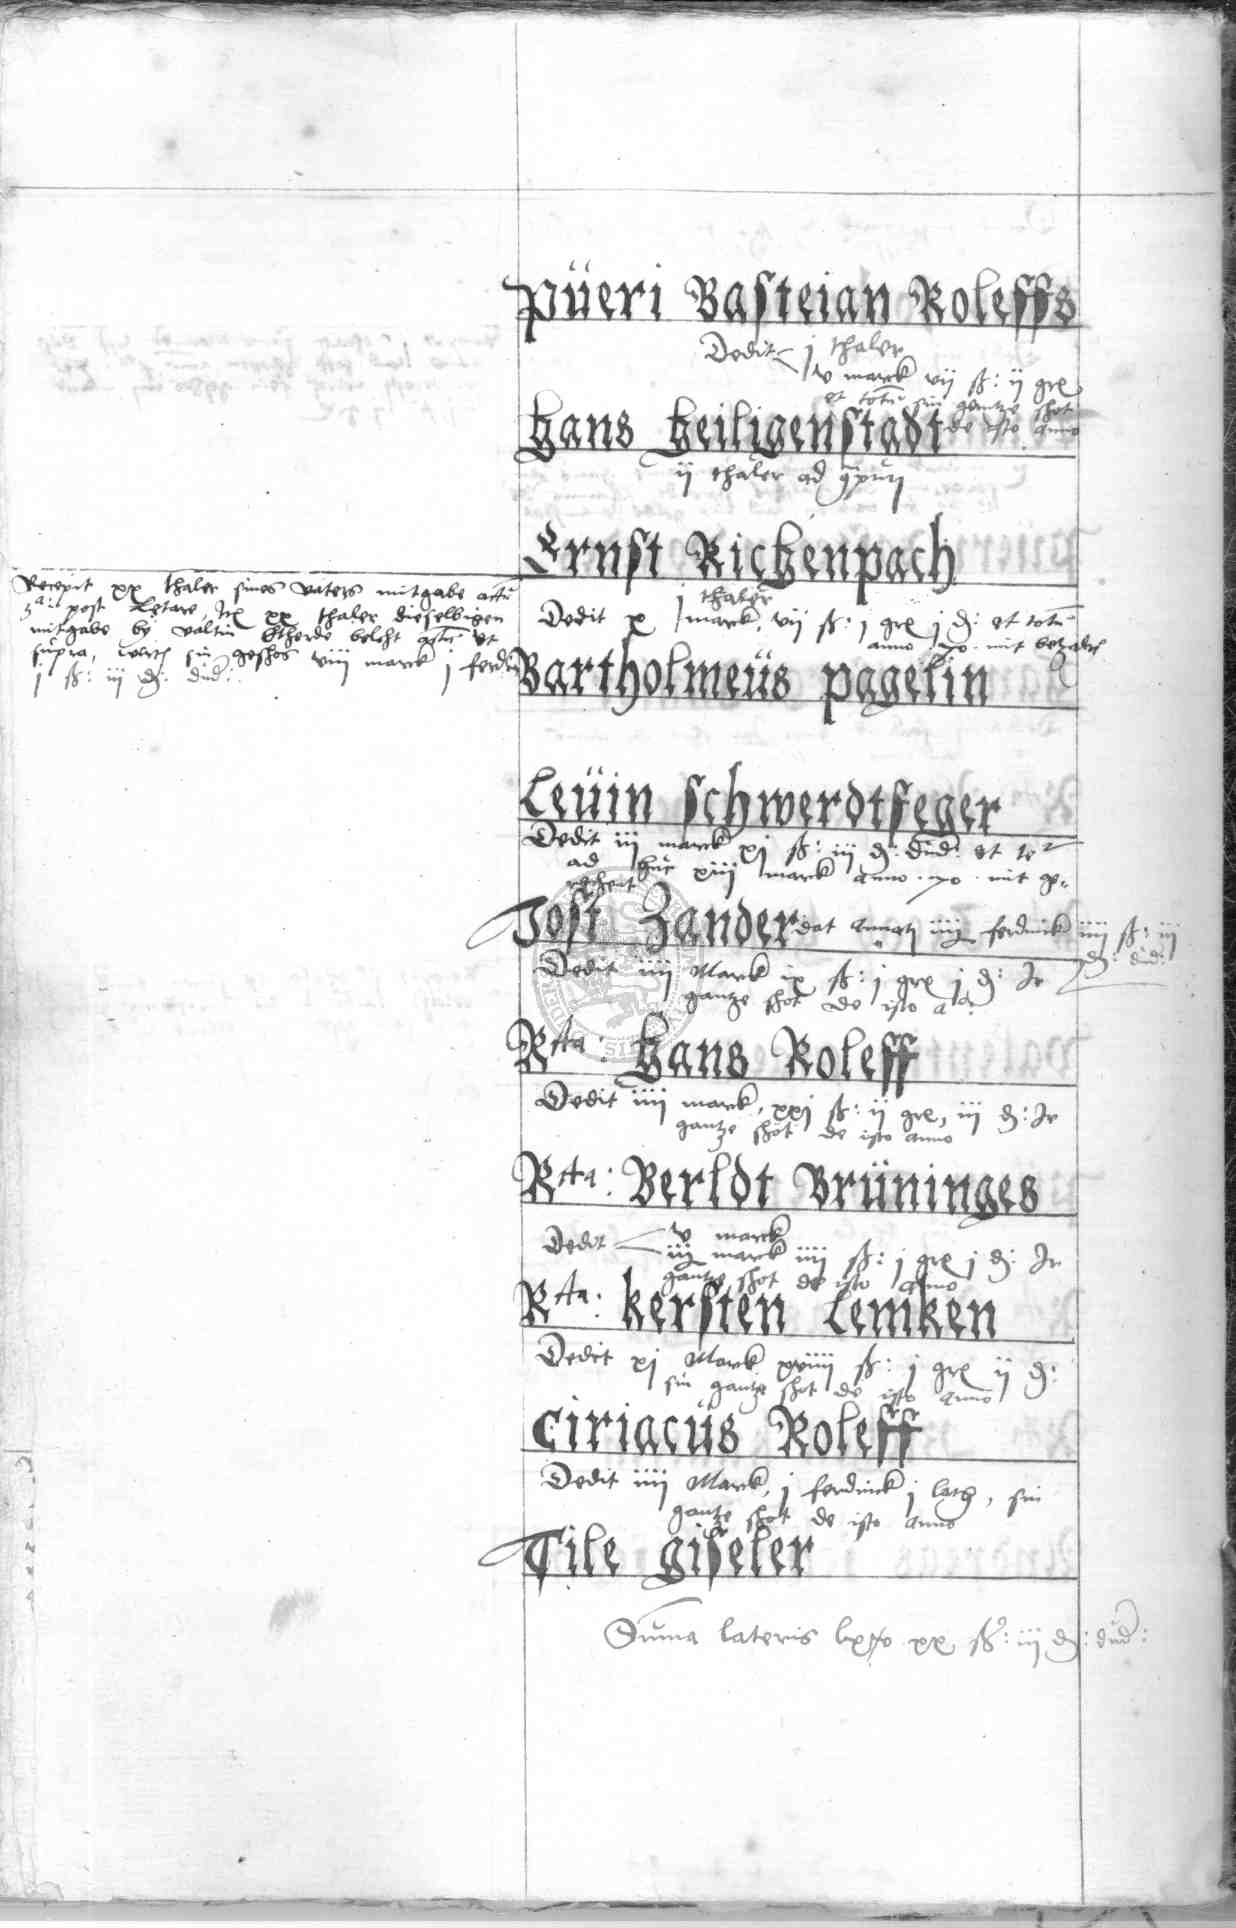 Püeri Basteian Roleffs
Dedit j thaler
v marck vij ß: ij grex
et totu sin gantze shot
de isto anno
Hans Heiligenstadt
ij thaler ad
Ernst Richenpach
j thaler
Dedit x marck, vij ß: j grex j d: et totu
anno mit
Recepit xx thaler sines vaters mitgabe actu
post Letare, xx thaler dieselbigen
mitgabe by Valtin et
supra, sin geshos viij marck j ferdi
j ß: iij d: dud:
Bartholmeüs pagelin
Leüin schwerdtfeger
Dedit iij marck xj ß: iij d: dud: et
ad huc xiij marck anno mit
Jost Zander dat iiij ferdinck iiij ß: iij
d: dud:
Dedit iiij Marck ix ß: j grex j d: Ir
gantze shot de isto
Rtta: Hans Roleff
Dedit iiij marck, xxj ß: ij grex, iij d: Ir
gantze shot de isto anno
Rtta: Berldt Brüninges
Dedit v marck
iij marck iiij ß: j grex j d: Ir
gantze shot de isto anno
Rtta: kersten Lemken
Dedit xj Marck xviiij ß: j grex ij d:
sin gantze shot de isto anno
Ciriacüs Roleff
Dedit iiij Marck, j ferdinck j lath, sin
gantze shot de isto anno
Tile giseler
Suma lateris xx ß: iij d: dud: